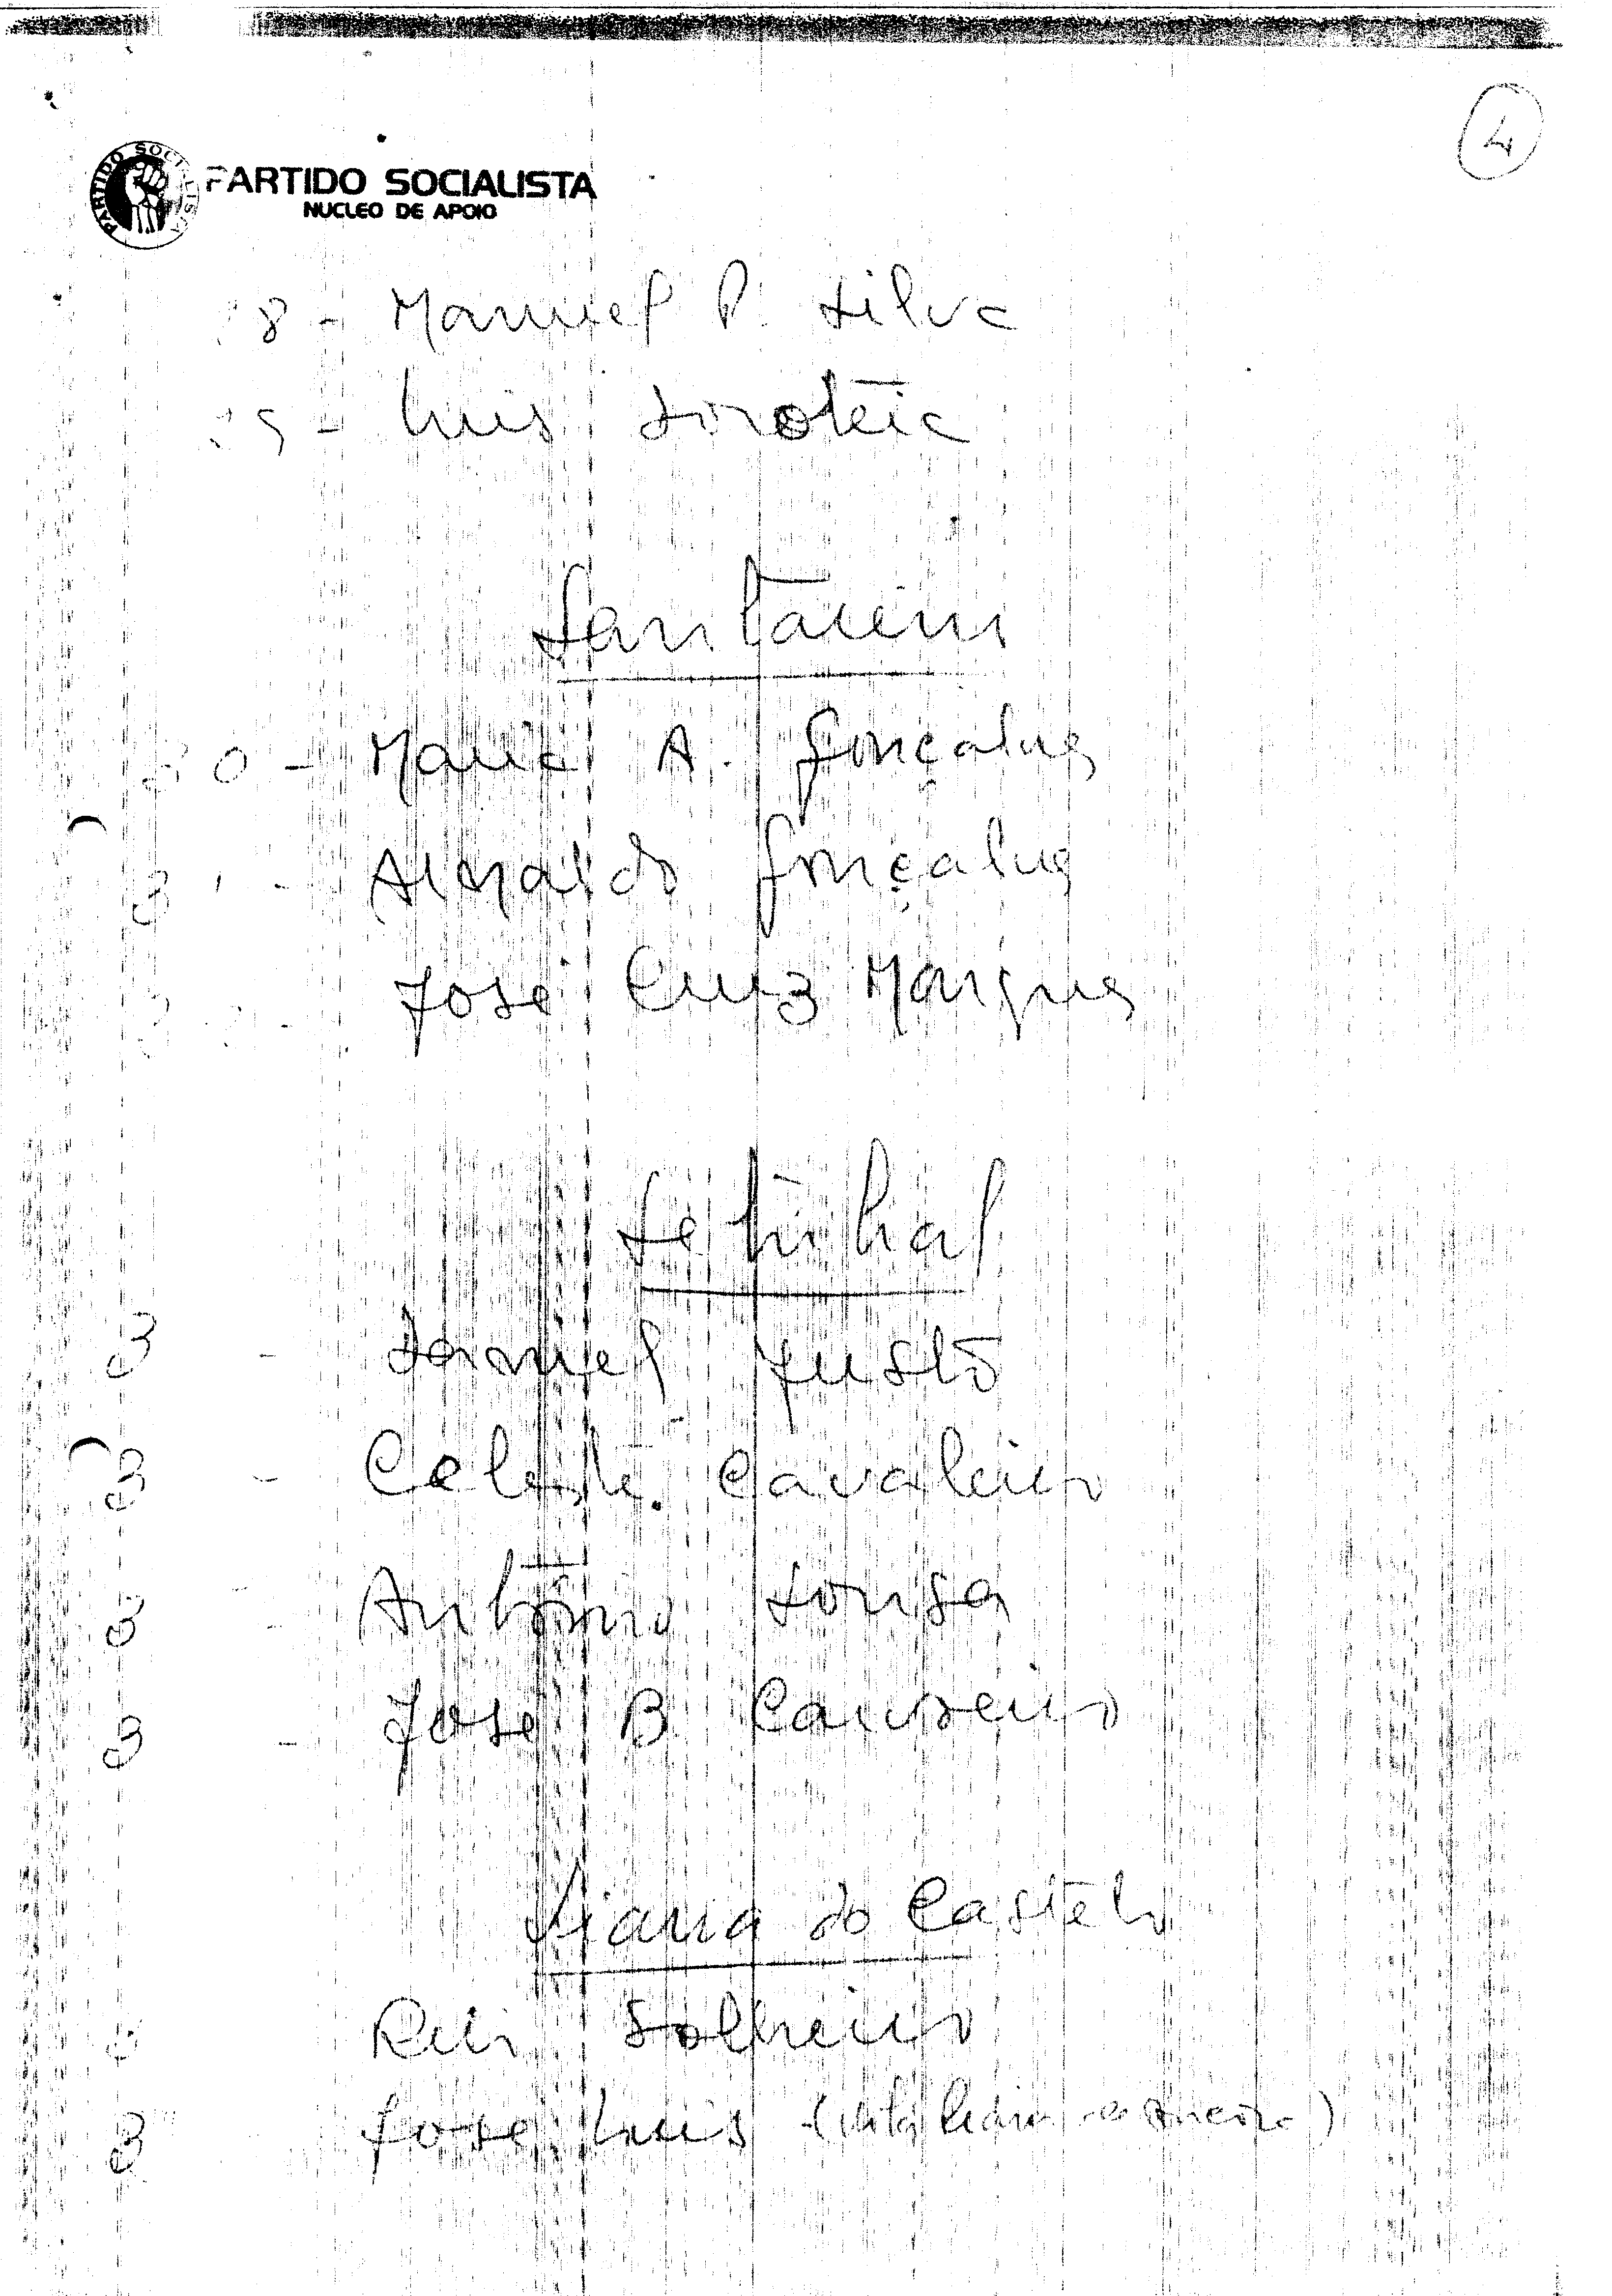 4
PARTIDO SOCIALISTA
PARTIDO SOCIALISTA
NUCLEO DE APOIO
8 - Manuel P. Silva
9 - Luis Doroteia
Santarem
30 - Maria A. Gonçalves
31 - Arnaldo Gonçalves
- José Cruz Marques
Setúbal
3 - Daniel Justo
3 - Celeste Cavaleiro
3 - António Sousa
3 - José B. Carreiro
Viana do Castelo
Rui Solheiro
3 José Luis